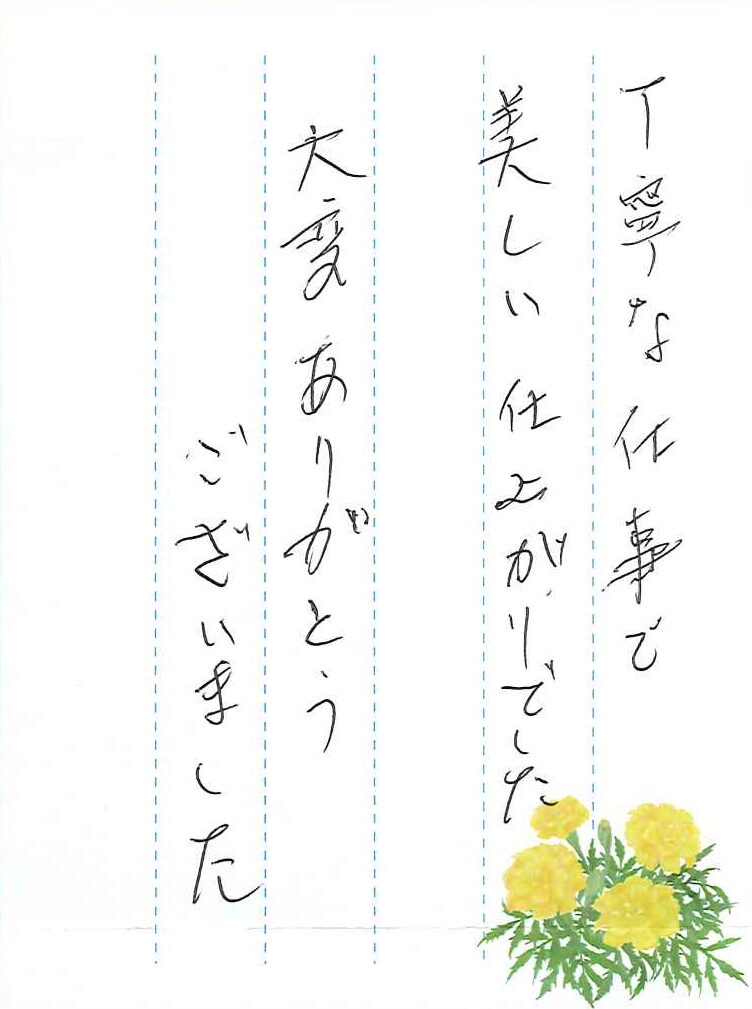 丁寧な仕事で
美しい仕上がりでした
大変ありがとう
ございました